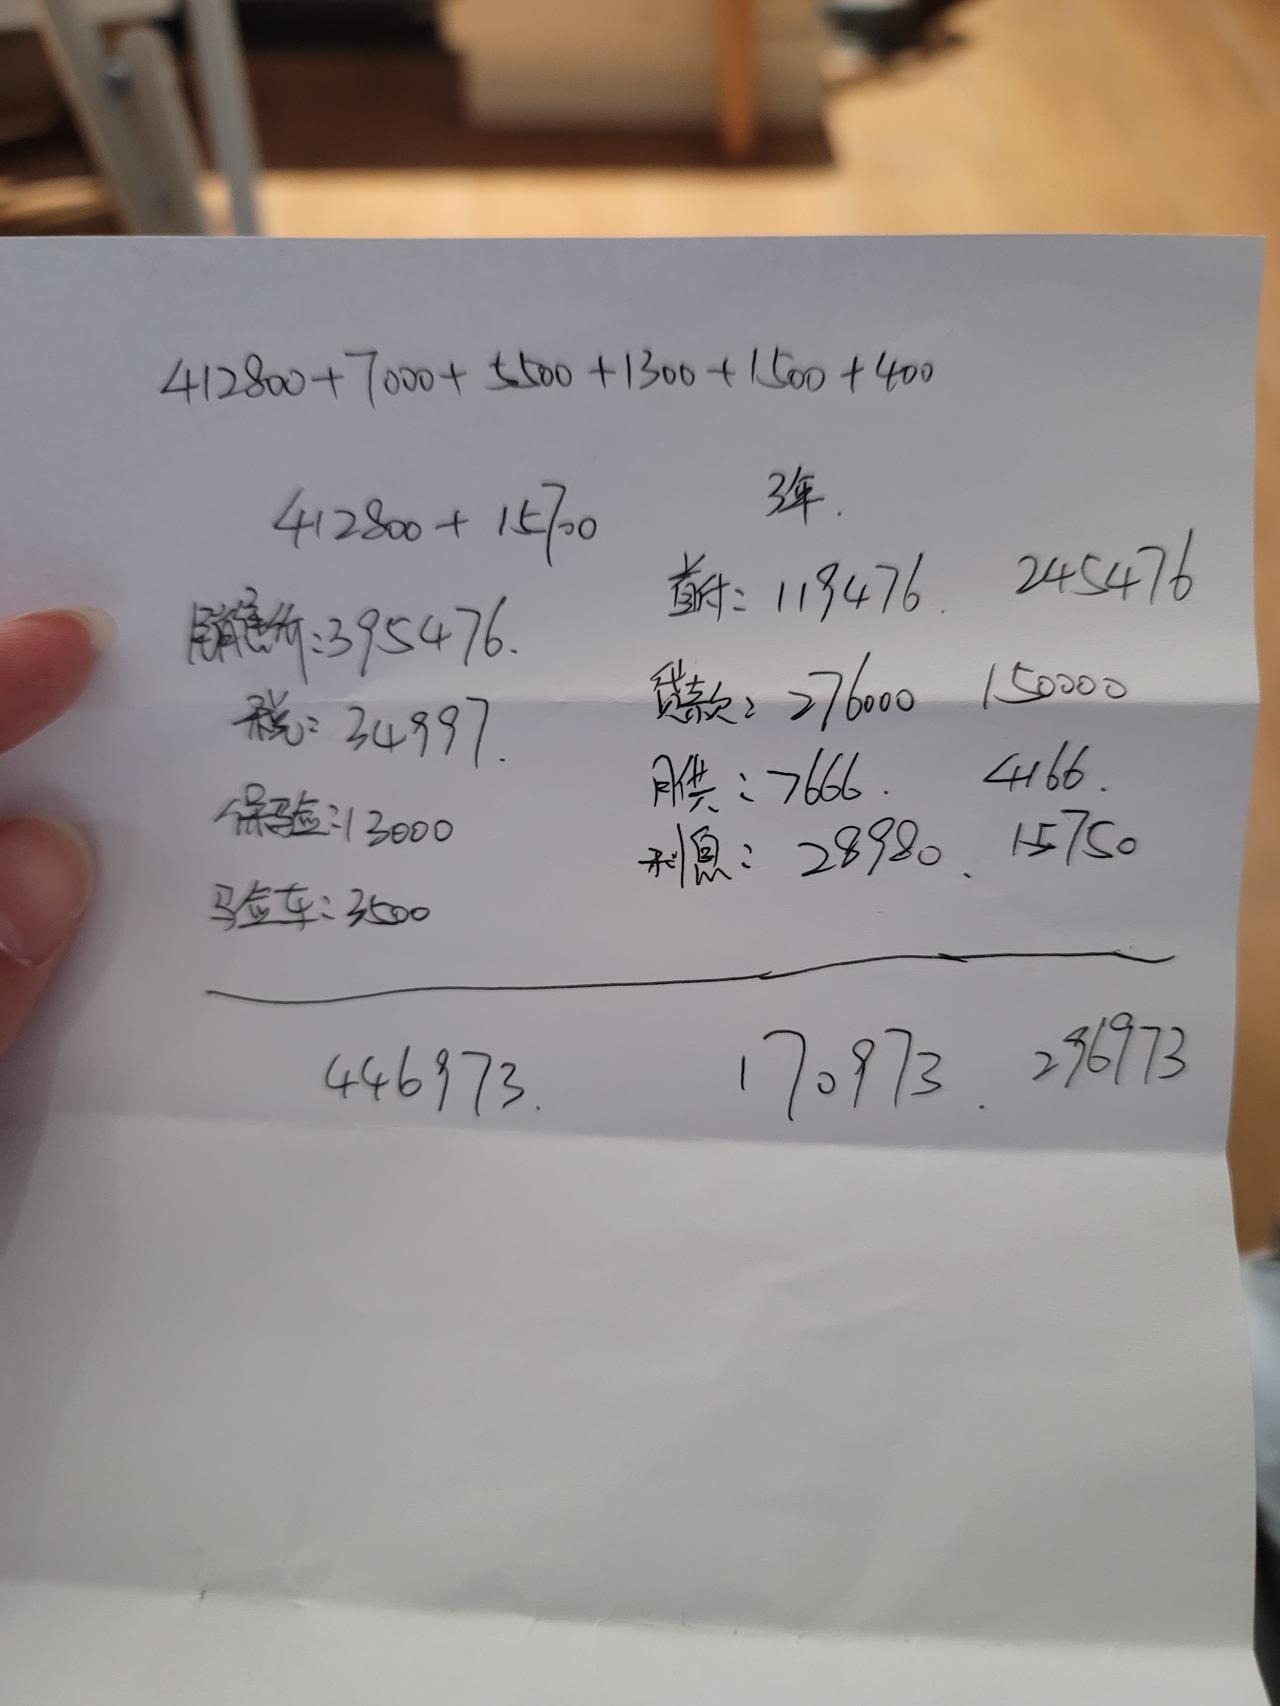 412800+7000+5500+1300+1500+400
412800+15700
销售价:395476.
税:34997.
保险:13000
验车:3500
446973.
3年.
首付:119476. 245476
贷款:276000 150000
月供:7666. 4166.
利息:28980. 15750
170973. 296973